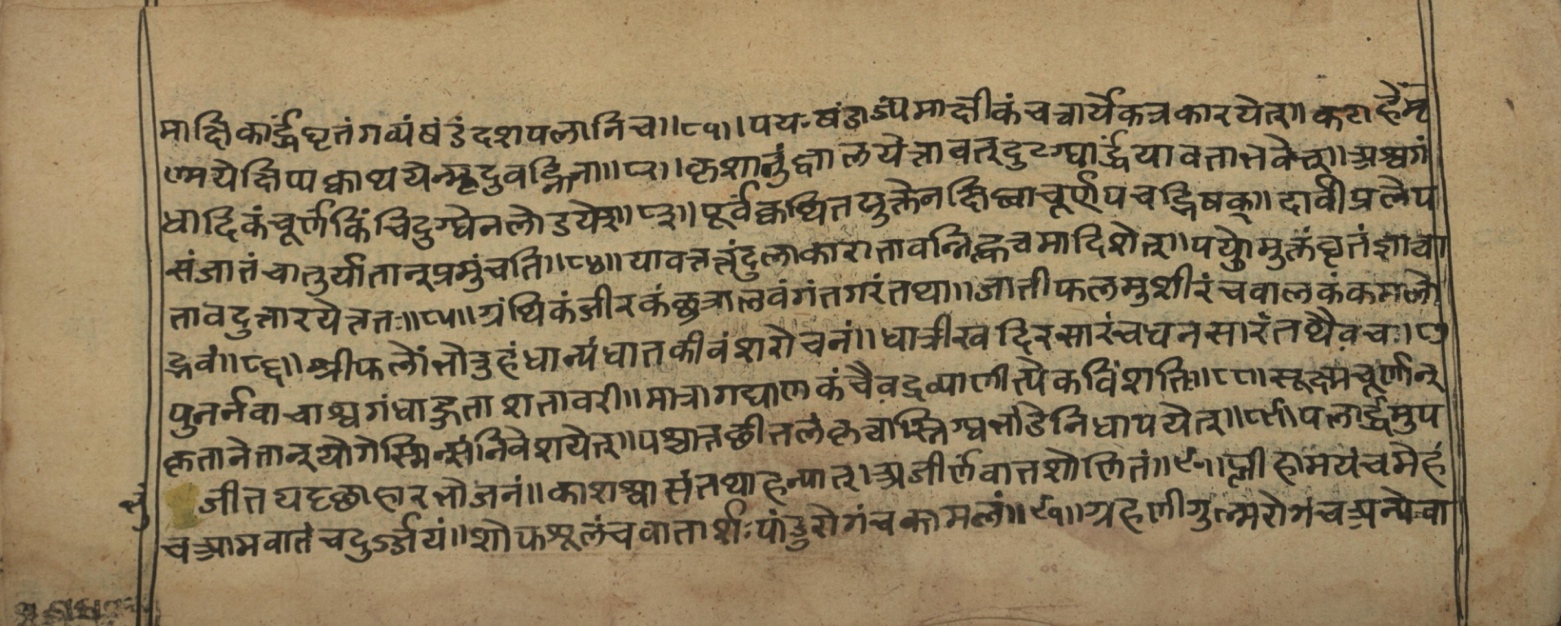 माक्षिकार्द्धघृतंगव्यंषंडंदशपलानिच॥८१॥पयःषंडाज्यमाक्षीकंचत्वार्येकत्रकारयेत्॥कटाहेमृ
ण्मयेक्षिप्यक्वाथयेन्मृदुवह्निना॥८२॥कृशानुंज्वालयेत्तावत्दुग्धार्द्धंयावतात्तवेत्॥अश्वगं
धादिकंचूर्णंकिंचिदुग्धेनलोडयेत्॥८३॥पूर्वंक्वथितयुक्तेनक्षिप्त्वाचूर्णंपचद्भिषक्॥दार्वीप्रलेप
संजातंचातुर्यातान्प्रमुंचति॥८४॥यावत्तत्तंदुलाकारातावन्निष्क्वचमादिशेत्॥पयोमुक्तंघृतंज्ञात्वा
तावदुत्तारयेत्ततः॥८५॥ग्रंथिकंजीरकंछुन्नालवंगंतगरंतथा॥जातीफलमुशीरंचवालकंकमलो
द्भवं॥८६॥श्रीफलोंत्तोरुहंधान्यंधातकीवंशरोचनं॥धात्रीखदिरसारंचघनसारंतथैवच॥८७
पुनर्नवाचाश्वगंधाहुताशतावरी॥मात्रागद्याणकंचैवद्रव्याणीत्येकविंशतिः॥८८॥सूक्ष्मचूर्णान्
कृतानेतान्योगेस्मिन्संनिवेशयेत्॥पश्चातछीतलंकृत्वास्निग्धभांडेनिधापयेत्॥८९॥पलार्द्धमुप
भुंजीतयदृछाहारभोजनं॥काशश्वासंतथाहन्यात्अजीर्णंवातशोणितं॥९०॥प्लीहामयंचमेहं
चआमवातंचदुर्ज्जयं॥शोफशूलंचवातार्शःपांडुरोगंचकामलं॥९१॥ग्रहणीगुल्मरोगंचअन्येवा